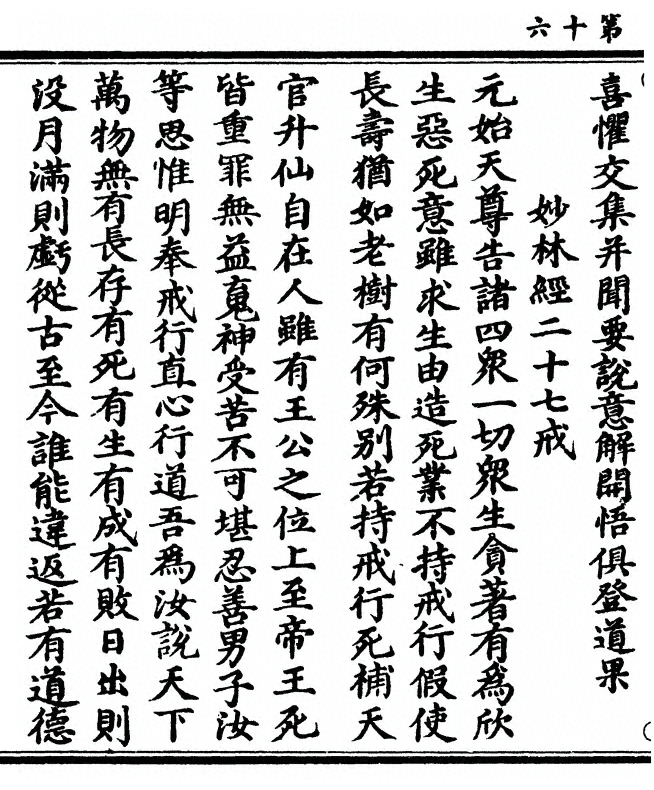 第十六
喜懼交集并聞要說意解開悟俱登道果
妙林經二十七戒
元始天尊告諸四眾一切眾生貪著有為欣
生惡死意雖求生由造死業不持戒行假使
長壽猶如老樹有何殊別若持戒行死補天
官升仙自在人雖有王公之位上至帝王死
皆重罪無益䰟神受苦不可堪忍善男子汝
等思惟明奉戒行直心行道吾為汝說天下
萬物無有長存有死有生有成有敗日出則
沒月滿則虧從古至今誰能違返若有道德